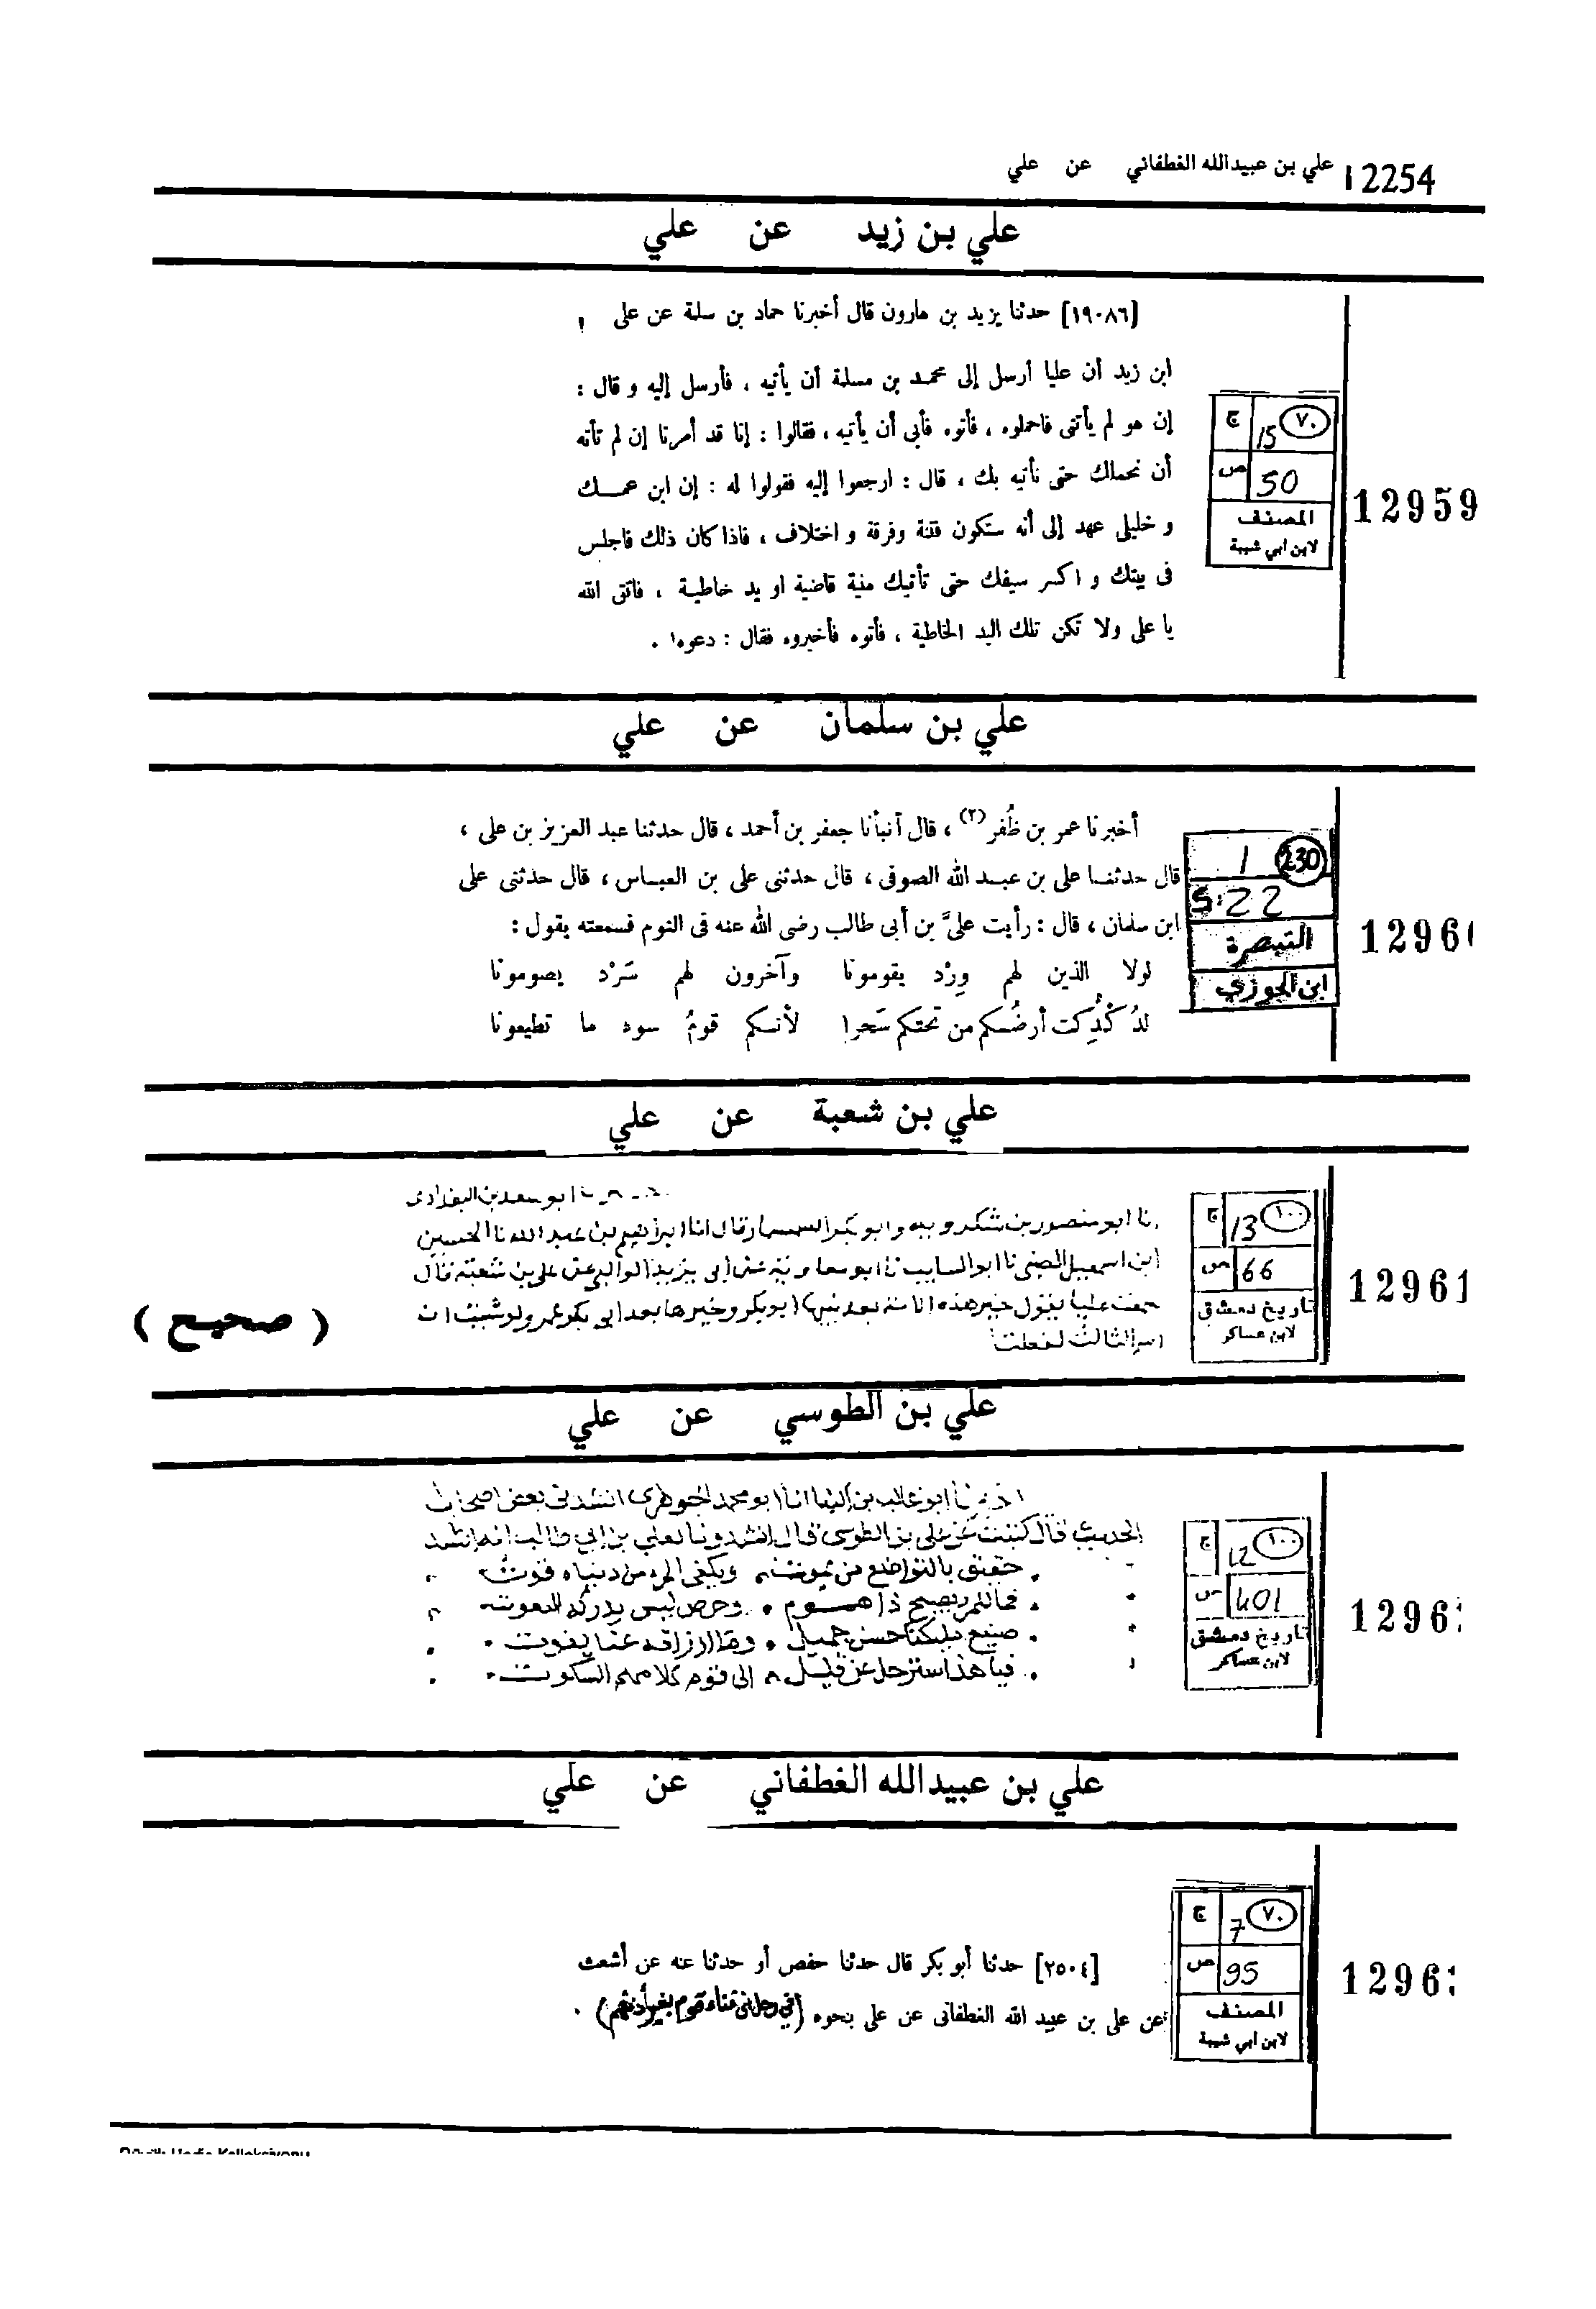 علي بن عبيدالله الغطفاني عن علي 12254
علي بن زيد عن علي
[١٩٠٨٦] حدثنا يزيد بن هارون قال أخبرنا حماد بن سلمة عن على
ابن زيد أن عليا أرسل إلى محمد بن مسلمة أن يأتيه ، فأرسل إليه و قال :
إن هو لم يأتنى فاحملوه ، فأتوه فأبى أن يأتيه ، فقالوا : إنا قد أمرنا إن لم تأته
أن نحملك حتى نأتيه بك ، قال : ارجعوا إليه فقولوا له : إن ابن عمك
و خليلى عهد إلى أنه ستكون فتنة وفرقة و اختلاف ، فاذا كان ذلك فاجلس
فى بيتك و اكسر سيفك حتى تأتيك منية قاضية او يد خاطية ، فاتق الله
يا على ولا تكن تلك اليد الخاطية ، فأتوه فأخبروه فقال : دعوه .
ج 15 ٧٠
ص 50
المصنف
لابن ابي شيبة
12959
علي بن سلمان عن علي
أخبرنا عمر بن ظُفر (٢) ، قال أنبأنا جعفر بن أحمد ، قال حدثنا عبد العزيز بن على ،
قال حدثنا على بن عبد الله الصوفى ، قال حدثنى على بن العباس ، قال حدثنى على
ابن سلمان ، قال : رأيت علىَّ بن أبى طالب رضى الله عنه فى النوم فسمعته يقول :
لولا الذين لهم وِرْد يقومونا وآخرون لهم سَرْد يصومونا
لدُكْدِكت أرضُكم من تحتكم سَحرا لأنكم قومُ سوء ما تطيعونا
1 230
S: 22
التبصرة
ابن الجوزي
1296
علي بن شعبة عن علي
ابو سعد بن البغدادى
نا ابو منصور بن شكرويه وابو بكر السمسار قال انا ابراهيم بن عبد الله نا الحسين
ابن اسمعيل الضبى نا ابو السايب نا ابو معاوية عن ابى يزيد الوالبى عن على بن شعبة قال
سمعت عليا يقول خير هذه الامة بعد نبيها ابو بكر وخيرها بعد ابى بكر عمر ولو شئت ان
اسم الثالث لفعلت
( صحيح )
ج 13 ١٠٠
ص 66
تاريخ دمشق
لابن عساكر
12961
علي بن الطوسي عن علي
ابو غالب بن البنا انا ابو محمد الجوهرى انشدنى بعض اصحاب
الحديث قال كتبت عن على بن الطوسى قال انشدونا لعلي بن ابي طالب انه انشد
حقيق بالتواضع من يموت ويكفى المرء من دنياه قوت
فما للمرء يصبح ذا هموم وحرص ليس يدركه النعوت
صنيع مليكنا حسن جميل وما ارزاقه عنا يفوت
فيا هذا سترحل عن قليل الى قوم كلامهم السكوت
ج 12 ١٠٠
ص 401
تاريخ دمشق
لابن عساكر
1296
علي بن عبيدالله الغطفاني عن علي
[٢٥٠٤] حدثنا أبو بكر قال حدثنا حفص أو حدثنا عنه عن أشعث
عن على بن عبيد الله الغطفانى عن على بنحوه (في رجل بنى بفناء قوم بغير أذنهم) .
ج 7 ٧٠
ص 95
المصنف
لابن ابي شيبة
1296